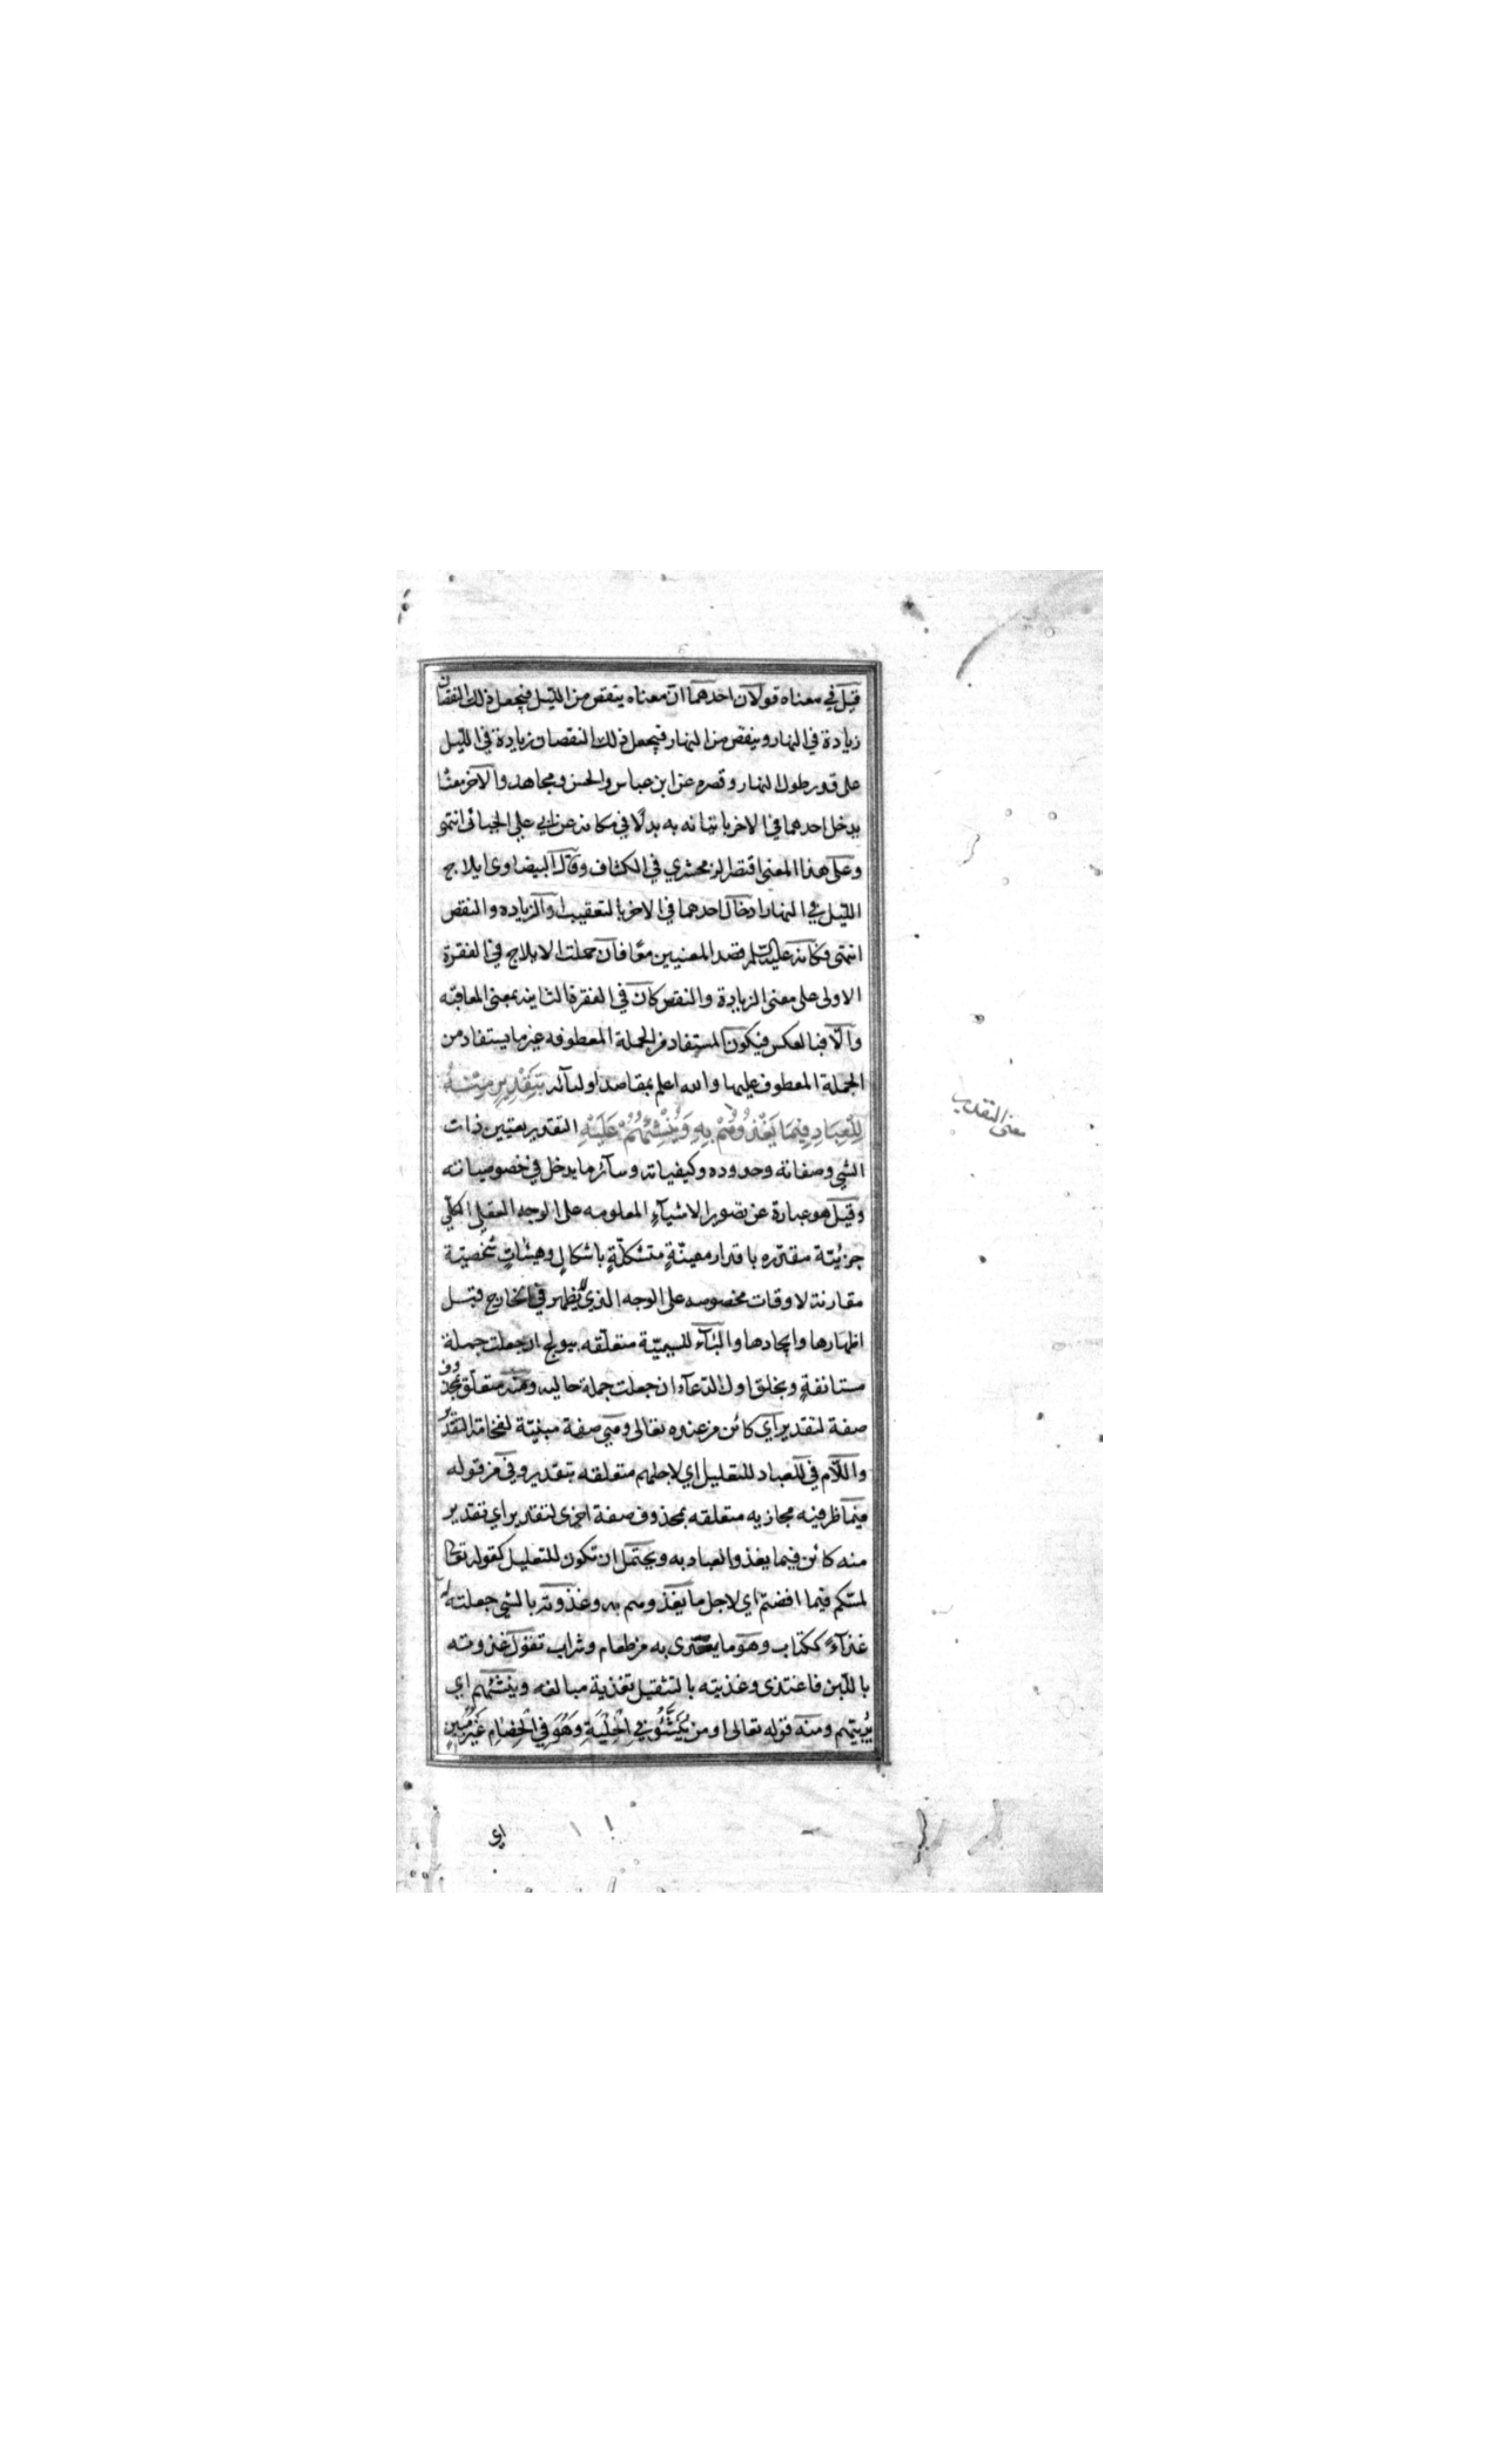 قيل في معناه قولان احدهما انّ معناه ينقص من الليل فيجعل ذلك النقصان
زيادة في النهار وينقص من النهار فيجعل ذلك النقصان زيادة في الليل
على قدر طول النهار وقصره عن ابن عباس والحسن ومجاهد والآخر معناه
يدخل احدهما في الاخر باتيانه به بدلًا في مكانه عن ابي علي الجبائي انتهى
وعلى هذا المعنى اقتصر الزمخشري في الكشاف وقال البيضاوي ايلاج
الليل في النهار ادخال احدهما في الاخر بالتعقيب او الزياده والنقص
انتهى وكانه عليه السلم قصد المعنيين معًا فان حملت الايلاج في الفقرة
الاولى على معنى الزيادة والنقص كان في الفقرة الثانيه بمعنى المعاقبه
والّا فبالعكس فيكون المستفاد من الجملة المعطوفه غير ما يستفاد من
الجملة المعطوف عليها والله اعلم بمقاصد اوليآئه بِتَقْدِيرٍ مِنْهُ
لِلْعِبَادِ فِيمَا يَغْذُوهُمْ بِهِ وَيُنْشِئُهُمْ عَلَيْهِ التقدير تعيين ذات
الشي وصفاته وحدوده وكيفياته وسآئر ما يدخل في خصوصياته
وقيل هو عبارة عن تصوير الاشيآءِ المعلومه على الوجه العقلي الكلّي
جزئيّة مقدّره باقدار معيّنةٍ متشكلّةٍ باشكالٍ وهيئاتٍ شخصيّة
مقارنة لاوقات مخصوصه على الوجه الذي يظهر في الخارج قبل
اظهارها وايجادها والبآء للسببيّة متعلّقه بيولج ان جعلت جملة
مستانفةٍ وبخلق اول الدعآء ان جعلت جملة حاليه ومنه متعلّق بمحذوف
صفة لتقدير اي كائن من عنده تعالى وهي صفة مبنيّة لفخامة التقدير
واللّام في للعباد للتعليل اي لاجلهم متعلقه بتقدير وفي من قوله
فيما ظرفيه مجازيه متعلقه بمحذوف صفة اخرى لتقدير اي تقدير
منه كائن فيما يغذو العباد به ويحتمل ان تكون للتعليل كقوله تعالى
لمسّكم فيما افضتم اي لاجل ما يغذوهم به وغذوته بالشي جعلته له
غذآءً ككتاب وهو ما يغتذى به من طعام وشراب تقول غذوته
باللبن فاغتذى وغذيته بالتثقيل تغذية مبالغه وينشئهم اي
يُربيّهم ومنه قوله تعالى او من يُنَشَّؤُ في الْحِلْيَةِ وَهُوَ فِي الْخِصَامِ غَيْرُ مُبِينٍ
اي
معنى التقدير